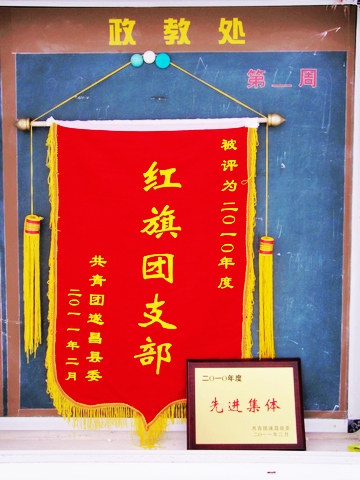 政教处
第一周
被评为二〇一〇年度
红旗团支部
共青团遂昌县委
二〇一一年二月
二〇一〇年度
先进集体
共青团遂昌县委
二〇一一年二月